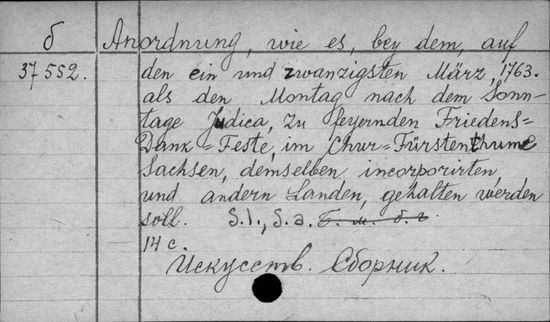 б Anordnung, wie es, bey dem, auf
37552. den ein und zwanzigsten März, 1763.
als den Montag nach dem Sonn-
tage Judica, zu feyernden Friedens-
Dank-Feste, im Chur-Fürstenthume
Sachsen, demselben incorporirten,
und andern Landen, gehalten werden
soll. S.l., S.a. Б. м. б. г.
14 с.
Искусств. Сборник.